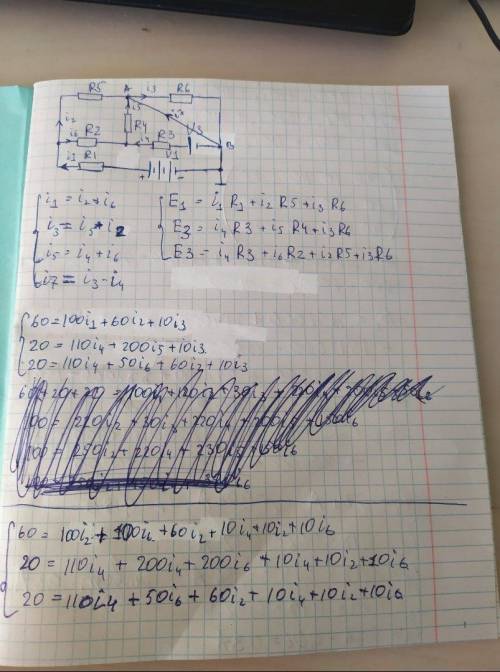 R5 A i3 R6
i5
i2 R4 i7
i6 R2 i4 R3 V3 B
i1 R1 V1
+ -
i1 = i2 + i6 E1 = i1 R1 + i2 R5 + i3 R6
i3 = i5 + i2 E3 = i4 R3 + i5 R4 + i3 R6
i5 = i4 + i6 E3 = i4 R3 + i6 R2 + i2 R5 + i3 R6
i7 = i3 - i4
60 = 100i1 + 60i2 + 10i3
20 = 110i4 + 200i5 + 10i3
20 = 110i4 + 50i6 + 60i2 + 10i3
60 = 100i2 + 100i2 + 60i2 + 10i4 + 10i2 + 10i6
20 = 110i4 + 200i4 + 200i6 + 10i4 + 10i2 + 10i6
20 = 110i4 + 50i6 + 60i2 + 10i4 + 10i2 + 10i6